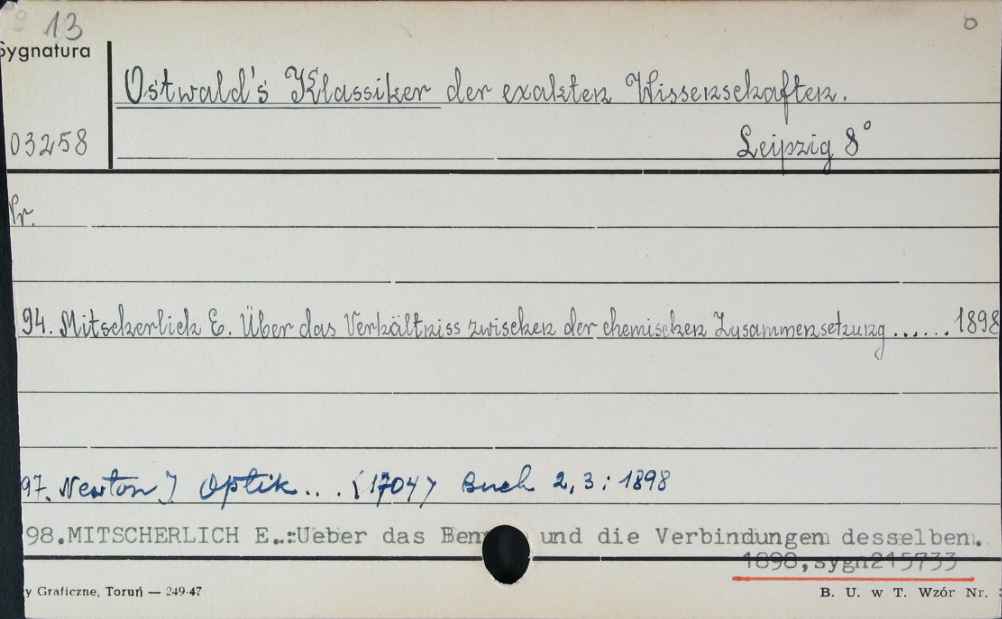 13
b
Sygnatura
Ostwald's Klassiker der exakten Wissenschaften.
03258
Leipzig 8°
Nr.
94. Mitscherlich E. Über das Verhältniss zwischen der chemischen Zusammensetzung ...... 1898
97. Newton J Optik... (1704) Buch 2,3: 1898
98.MITSCHERLICH E.:Ueber das und die Verbindungen desselben.
1898,sygn215733
y Graficzne, Toruń — 249-47
B. U. w T. Wzór Nr.